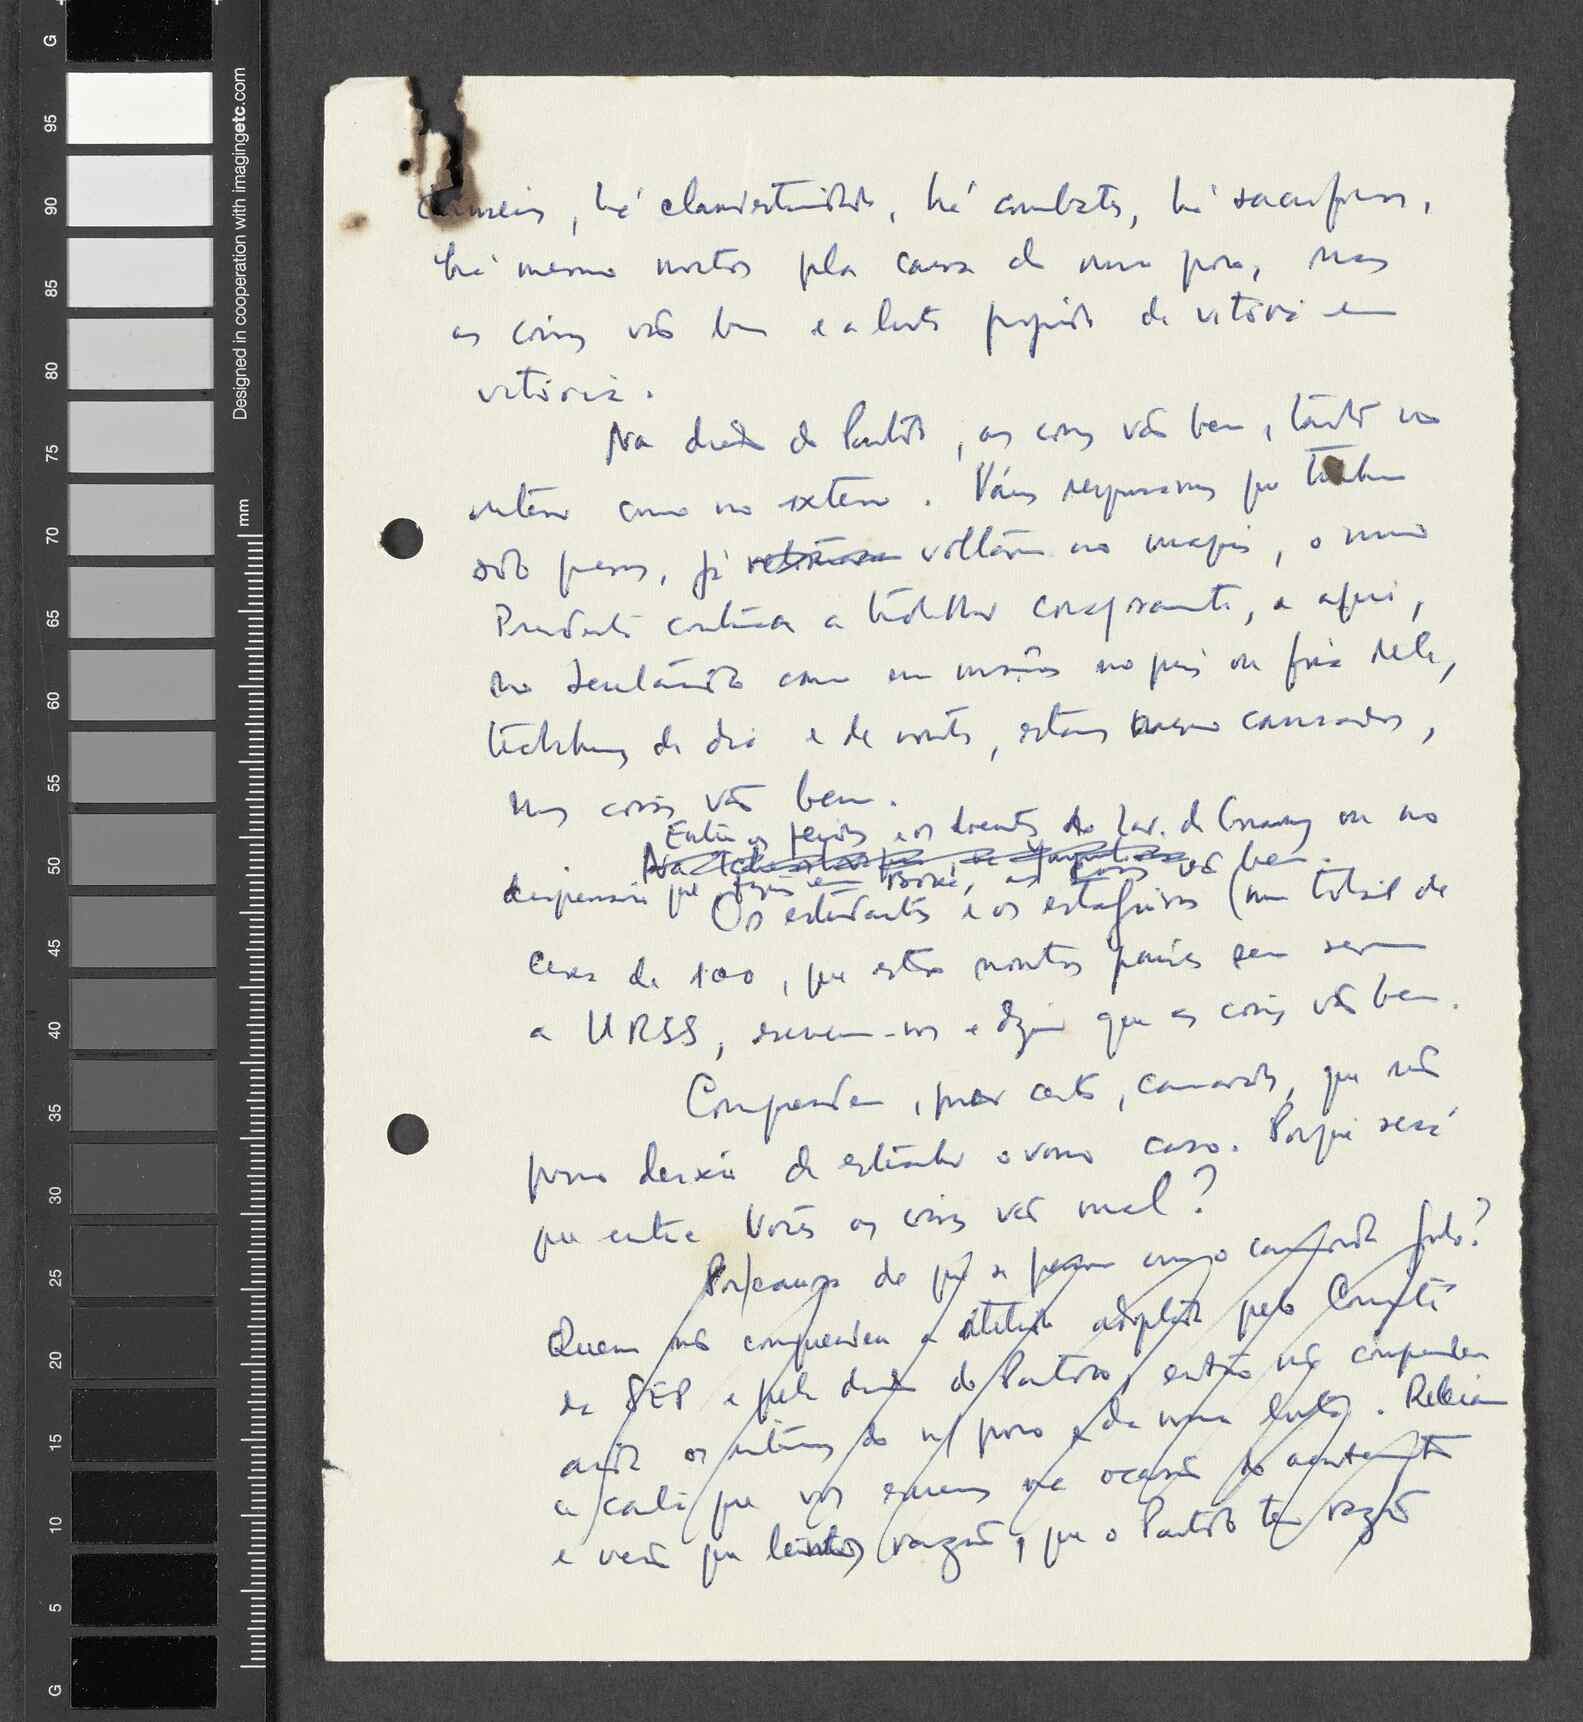 há clandestinidade, há combates, há sacrifícios,
há mesmo mortos pela causa do nosso povo, mas
as coisas vão bem e a luta progride de vitória em
vitória.
Na direcção do Partido, as coisas vão bem, tanto no
interior como no exterior. Vários responsáveis que tinham
sido presos, já voltaram ao maquis, o nosso
Presidente continua a trabalhar corajosamente, e aqui,
no Secretariado como em missões no país ou fora dele,
trabalhamos de dia e de noite, estamos mesmo cansados,
mas as coisas vão bem.
Entre os feridos e os doentes do Lar de Conakry ou no
dispensário que temos em Boké, as coisas vão bem.
Os estudantes e os estagiários (num total de
cerca de 100, que estão noutros países sem ser
a URSS, escrevem-nos e dizem que as coisas vão bem.
Compreendem, por certo, camaradas, que não
posso deixar de estranhar o vosso caso. Porque será
que entre vocês as coisas vão mal?
Por causa do que se passou com o camarada
Quem não compreendeu a atitude adoptada pelo Comité
da SEP e pela direcção do Partido, então não compreendeu
ainda os interesses do n/ povo e da nossa luta. Releiam
a carta que vos escrevemos na ocasião do acontecimento
e verão que temos razão, que o Partido tem razão
G
95
90
85
80
75
70
65
60
55
50
45
40
35
30
25
20
15
10
5
G
Designed in cooperation with imagingetc.com
mm